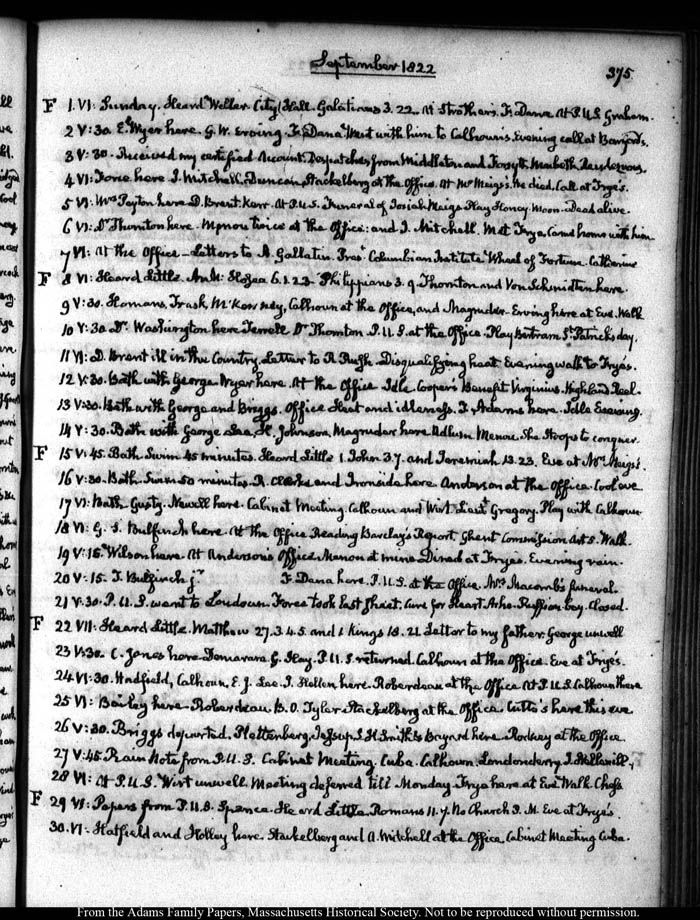 September 1822
375
F 1. VI: Sunday. Heard Weller City Hall. Galatians 3. 22. At Strother's. F. Dana. At P.U.S. Graham.
2 V: 30. E. Wyer here. G. W. Erving. F. Dana. Went with him to Calhoun's. Evening call at Bayard's.
3 V: 30. Received my certified Account. Despatches from Middleton and Forsyth. Macbeth Rendezvous.
4 VI: Force here J. Mitchell, Duncan, Stackelberg at the Office. At Mr Meigs's. He died. Call at Frye's.
5 VI: Mrs Payton here D. Brent. Kerr. At P.U.S. Funeral of Josiah Meigs. Play Honey Moon. Dead alive.
6 VI: Dr Thornton here. Menou twice at the Office: and J. Mitchell. Met Frye. Came home with him
7 VI: At the Office—Letters to A. Gallatin. Columbian Institute. Wheel of Fortune. Catharine
F 8 VI: Heard Little. And: Hosea 6. 1. 2. 3. Philippians 3. 9. Thornton and Von Schmidten here.
9 V: 30. Homans, Trask, McKenney, Calhoun at the Office, and Magruder. Erving here at Eve. Walk
10 V: 30. Dr Washington here Terrell Dr Thornton P.U.S. at the Office. Play Bertram St Patrick's day.
11 VI: D. Brent ill in the Country, Letter to R Rush. Disqualifying heat. Evening walk to Frye's.
12 V: 30. Bath with George. Wyer here. At the Office Idle. Cooper's Benefit Virginius. Highland Reel.
13 V: 30. Bath with George and Briggs. Office Heat and idleness. J. Adams here. Idle Evening.
14 V: 30. Bath with George. Lee, H. Johnson, Magruder here. Adlum Menou. She Stoops to conquer.
F 15 V: 45. Bath. Swim 45 minutes. Heard Little 1. John 3. 7. and Jeremiah 13. 23. Eve at Mrs Meigs's.
16 V: 30. Bath. Swim 50 minutes. R. Clarke and Ironside here Anderson at the Office. Cool eve
17 VI: Bath Gusty. Newell here. Cabinet Meeting. Calhoun and Wirt Lieut Gregory. Play with Calhoun
18 VI: G. S. Bulfinch here. At the Office Reading Barclay's Report. Ghent Commission Art. 5. Walk.
19 V: 15. Wilson here. At Anderson's Office. Menou at mine. Dined at Frye's. Evening rain.
20 V: 15. T. Bulfinch jr. F. Dana here. P.U.S. at the Office. Mrs Macomb's funeral.
21 V: 30. P.U.S. went to Loudoun. Force took last sheet. Cure for Heart Ache. Ruffian boy. Closed.
F 22 VII: Heard Little. Matthew 27. 3. 4. 5. and 1 Kings 18. 21. Letter to my father. George unwell
23 V: 30. C. Jones here Demarara G. Hay. P.U.S. returned. Calhoun at the Office. Eve at Frye's.
24 VI: 30. Hadfield, Calhoun, E. J. Lee. J. Hellen here. Roberdeau at the Office At P.U.S. Calhoun there
25 VI: Bailey here. Roberdeau. B. O. Tyler. Stackelberg at the Office. Cutts's here this eve
26 V: 30. Briggs departed. Plettenberg, Jessup, S. H. Smith & Bayard here. Rodney at the Office.
27 V: 45. Rain Note from P.U.S. Cabinet Meeting. Cuba. Calhoun. Londonderry.
28 VI: At P.U.S. Wirt unwell. Meeting deferred till Monday. Frye here at Eve. Walk. Chess.
F 29 VI: Papers from P.U.S. Spence. Heard Little. Romans 11. 7. No Church P. M. Eve at Frye's.
30. VI: Hatfield and Holley here. Stackelberg and A. Mitchell at the Office. Cabinet Meeting Cuba.
From the Adams Family Papers, Massachusetts Historical Society. Not to be reproduced without permission.